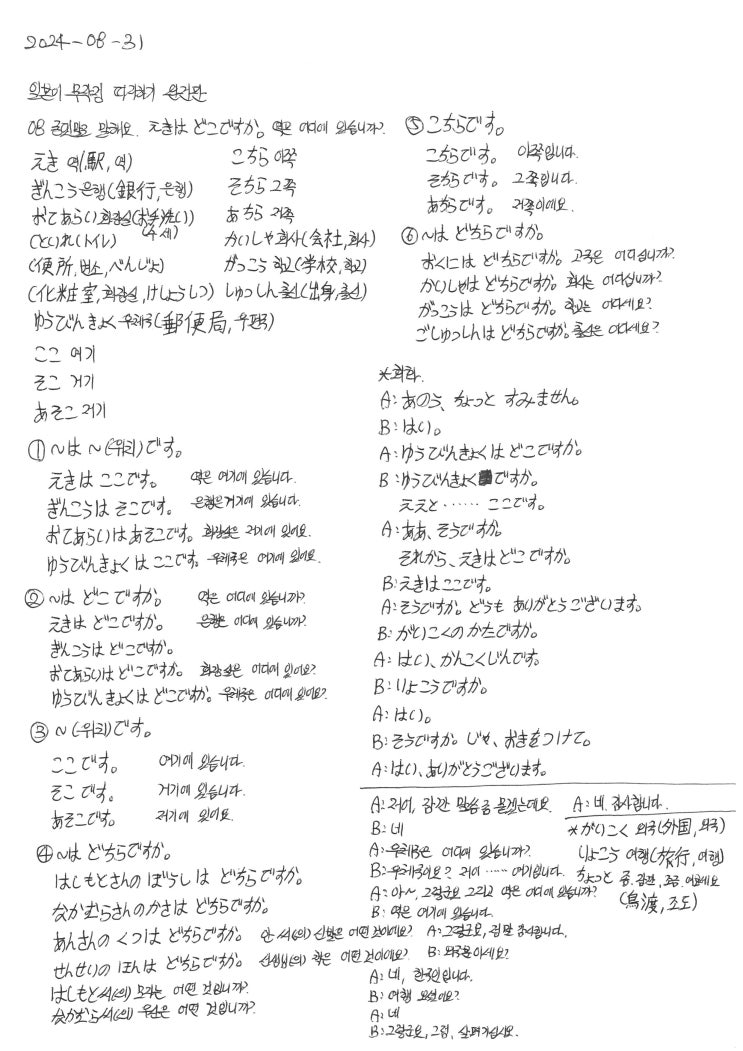 2024-08-31
일본어 무작정 따라하기 완전판
08 공손말로 말해요. えきは どこですか。 역은 어디에 있습니까?
えき 역(駅, 역)
ぎんこう 은행(銀行, 은행)
おてあらい 화장실(お手洗い)
(수세)
(といれ(トイレ)
(便所, 변소, べんじょ)
(化粧室, 화장실, けしょうしつ)
ゆうびんきょく 우체국(郵便局, 우편국)
ここ 여기
そこ 거기
あそこ 저기
こちら 이쪽
そちら 그쪽
あちら 저쪽
かいしゃ 회사(会社, 회사)
がっこう 학교(学校, 학교)
しゅっしん 출신(出身, 출신)
① ~は ~(위치)です。
えきは ここです。 역은 여기에 있습니다.
ぎんこうは そこです。 은행은 거기에 있습니다.
おてあらいは あそこです。 화장실은 저기에 있어요.
ゆうびんきょくは ここです。 우체국은 여기에 있어요.
② ~は どこですか。 역은 어디에 있습니까?
えきは どこですか。 은행은 어디에 있습니까?
ぎんこうは どこですか。
おてあらいは どこですか。 화장실은 어디에 있어요?
ゆうびんきょくは どこですか。 우체국은 어디에 있어요?
③ ~(위치)です。
ここです。 여기에 있습니다.
そこです。 거기에 있습니다.
あそこです。 저기에 있어요.
④ ~は どちらですか。
はしもとさんの ぼうしは どちらですか。
なかむらさんの かさは どちらですか。
あんさんの くつは どちらですか。 안 씨(의) 신발은 어떤 것이에요?
せんせいの ほんは どちらですか。 선생님(의) 책은 어떤 것이에요?
はしもと씨(의) 모자는 어떤 것입니까?
なかむら씨(의) 우산은 어떤 것입니까?
⑤ こちらです。
こちらです。 이쪽입니다.
そちらです。 그쪽입니다.
あちらです。 저쪽이에요.
⑥ ~は どちらですか。
おくには どちらですか。 고국은 어디십니까?
かいしゃは どちらですか。 회사는 어디십니까?
がっこうは どちらですか。 학교는 어디세요?
ごしゅっしんは どちらですか。 출신은 어디세요?
*회화.
A: あのう、ちょっと すみません。
B: はい。
A: ゆうびんきょくは どこですか。
B: ゆうびんきょくですか。
ええと…… ここです。
A: ああ、そうですか。
それから、えきは どこですか。
B: えきは ここです。
A: そうですか。どうも ありがとうございます。
B: がいこくの かたですか。
A: はい、かんこくじんです。
B: りょこうですか。
A: はい。
B: そうですか。じゃ、おきをつけて。
A: はい、ありがとうございます。
A: 저어, 잠깐 말씀좀 묻겠는데요.
B: 네
A: 우체국은 어디에 있습니까?
B: 우체국이요? 저어 …… 여기입니다.
A: 아~, 그렇군요. 그리고 역은 어디에 있습니까?
B: 역은 여기에 있습니다.
A: 그렇군요, 정말 감사합니다.
B: 외국분이세요?
A: 네, 한국인입니다.
B: 여행 오셨어요?
A: 네
B: 그렇군요, 그럼, 살펴가십시오.
A: 네, 감사합니다.
*がいこく 외국(外国, 외국)
りょこう 여행(旅行, 여행)
ちょっと 좀, 잠깐, 조금
(鳥渡, 조도)